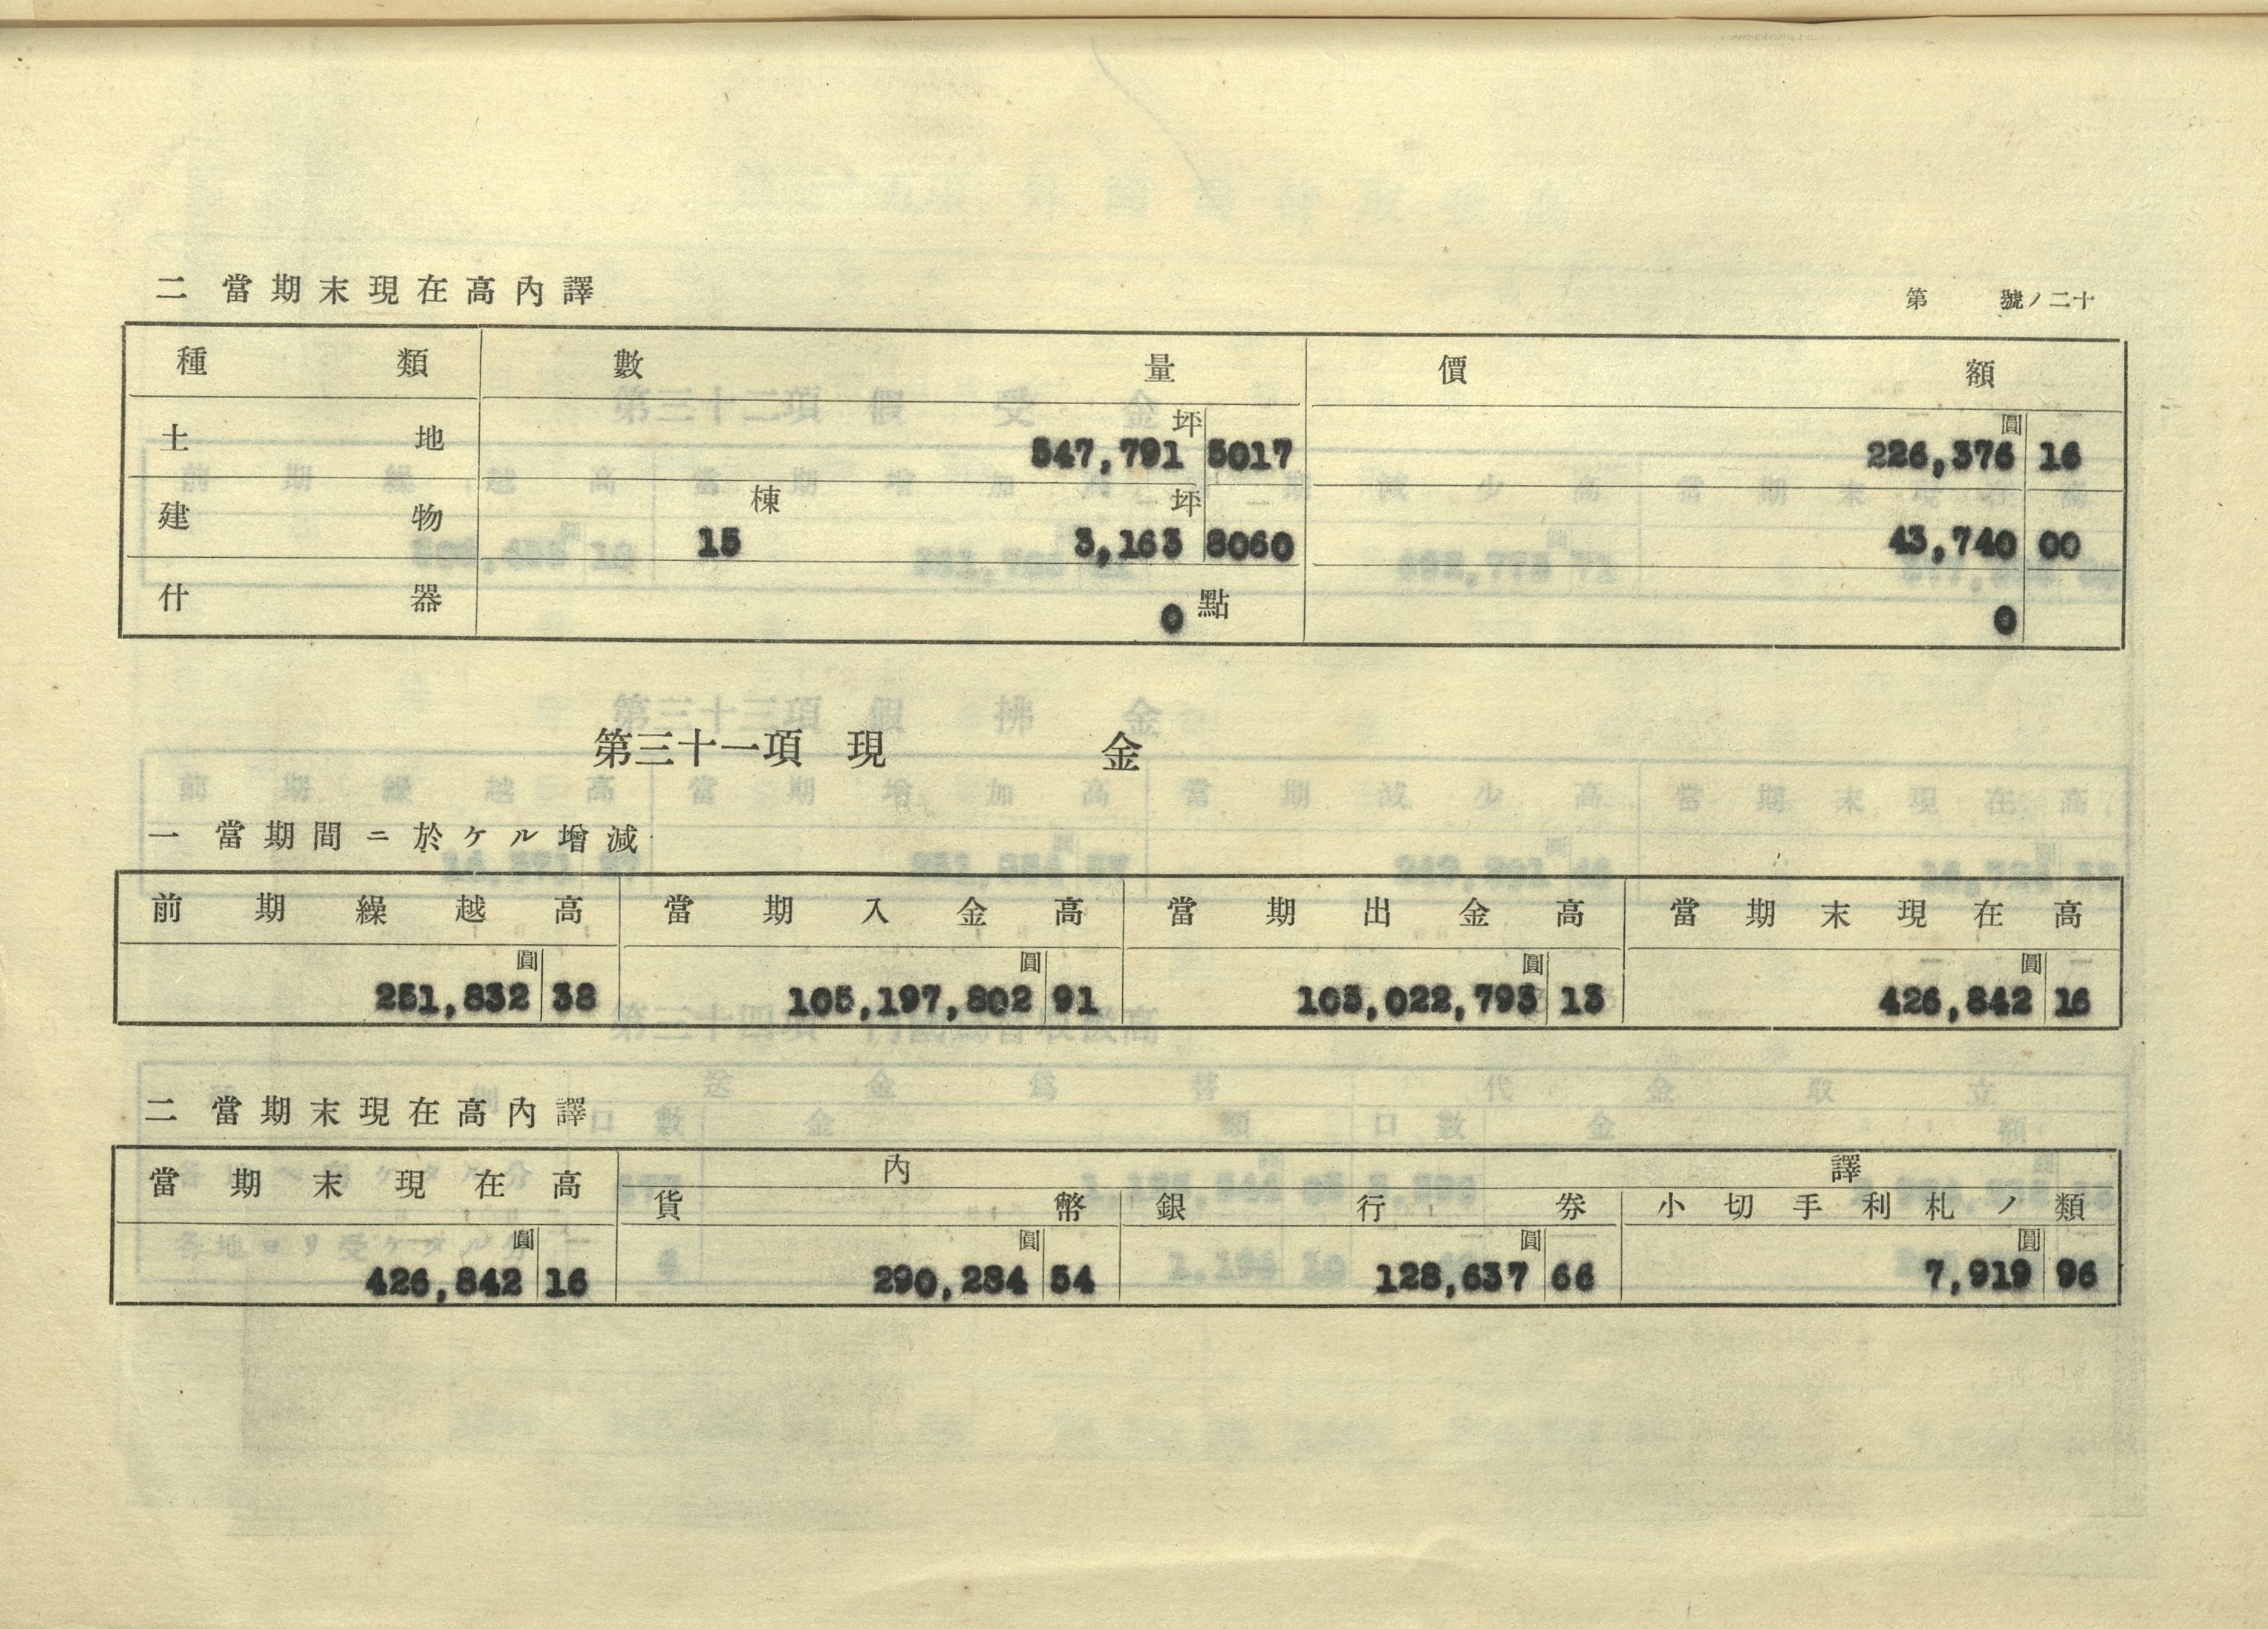 二 當期末現在高內譯
第 號ノ二十
種類 數量 價額
土地 547,791坪 5017 226,376圓 16
建物 15棟 3,163坪 8060 43,740 00
什器 0點 0
第三十一項 現金
一 當期間ニ於ケル增減
前期繰越高 當期入金高 當期出金高 當期末現在高
251,832圓 38 105,197,802圓 91 103,022,793圓 13 426,842圓 16
二 當期末現在高內譯
當期末現在高 內譯
貨幣 銀行券 小切手利札ノ類
426,842圓 16 290,284圓 54 128,637圓 66 7,919圓 96